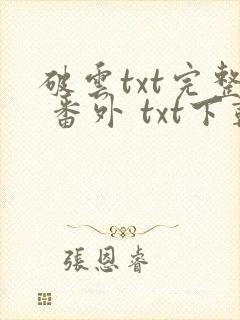 破雲txt完整
番外 txt下載
張恩睿